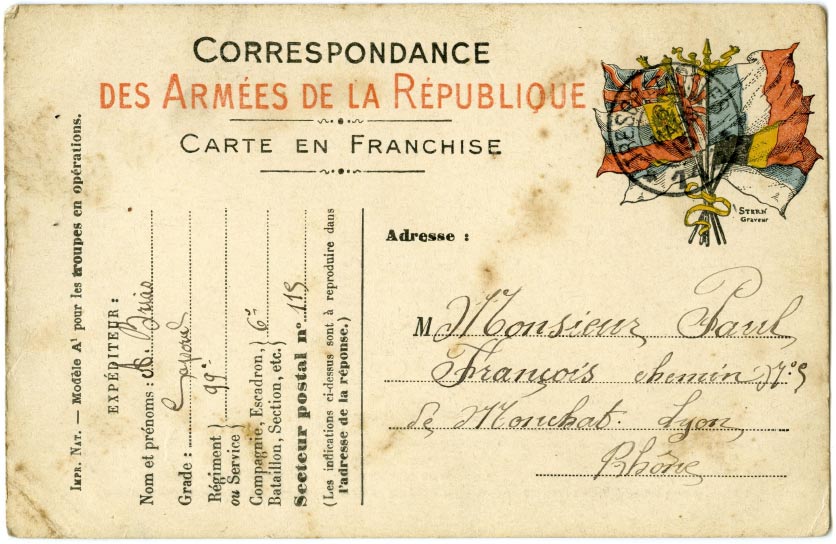 CORRESPONDANCE
DES ARMÉES DE LA RÉPUBLIQUE
CARTE EN FRANCHISE
IMPR. NAT. — Modèle A¹ pour les troupes en opérations.
EXPÉDITEUR :
Nom et prénoms :
Grade :
Régiment ou Service } 99e
Compagnie, Escadron, Bataillon, Section, etc. } 6e
Secteur postal n° 115
(Les indications ci-dessus sont à reproduire dans
l'adresse de la réponse.)
STERN
Graveur
Adresse :
M Monsieur Paul
François chemin N°5
de Monchat. Lyon
Rhône